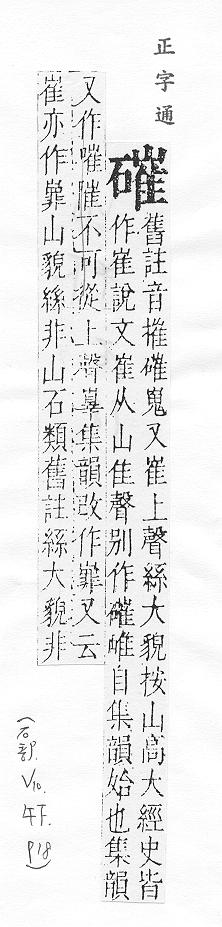 正字通
磪
舊註音摧磪鬼又崔上聲絲大貌按山高大經史皆
作崔說文崔从山隹聲别作磪嗺自集韻始也集韻
又作嗺陮不可從上聲辠集韻改作嶵又云
崔亦作嶵山貌絲非山石類舊註絲大貌非
(石部.
V10.
午下.
P18)